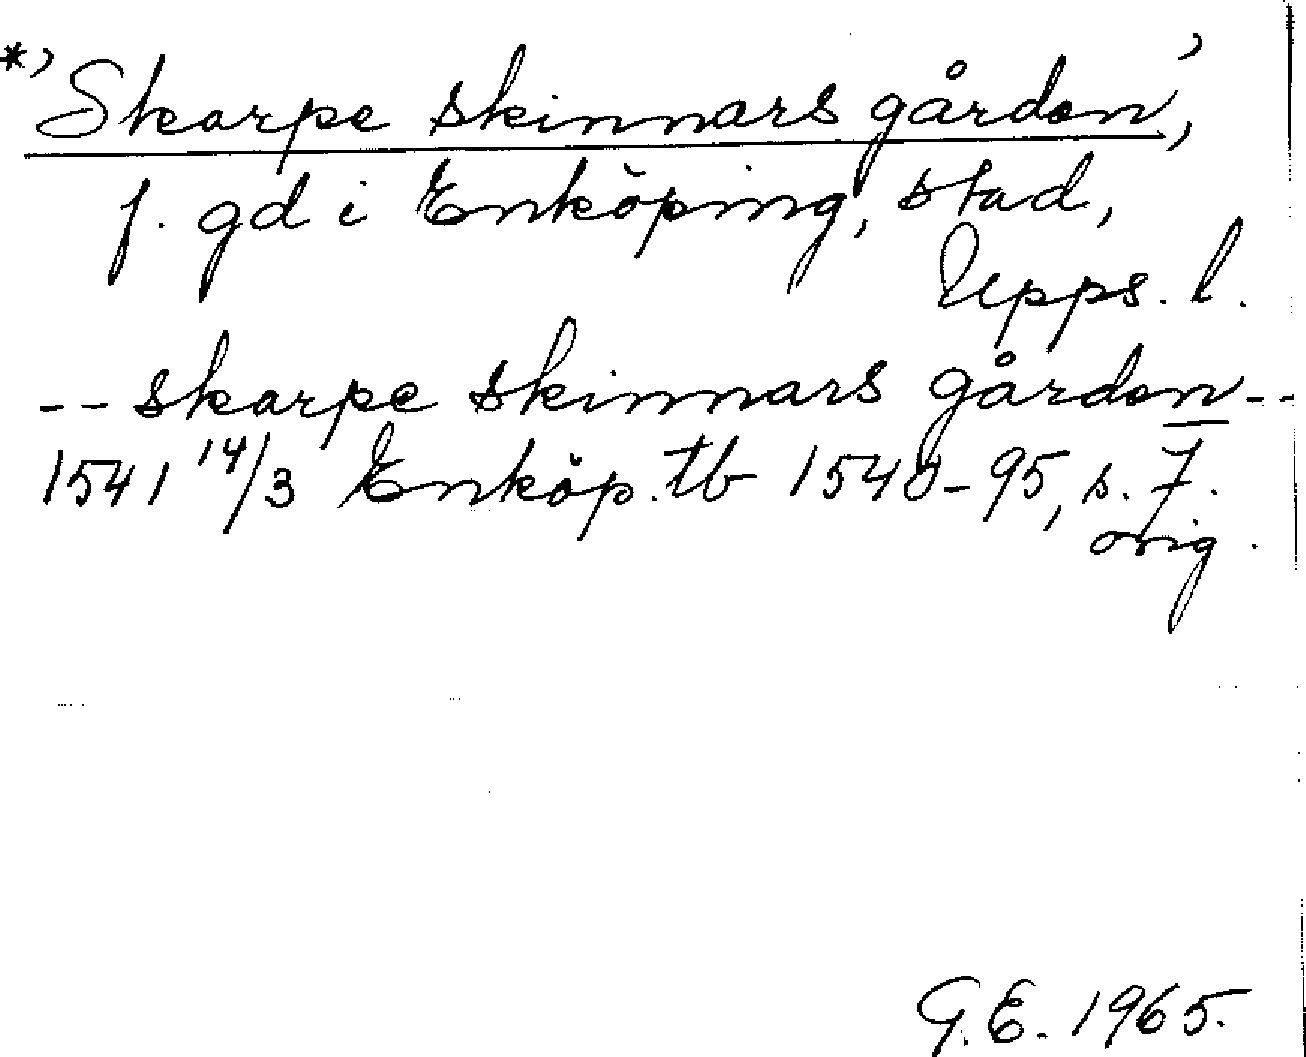 *'Skarpe skinnars gården',
f. gd i Enköping, stad,
Upps. l.
-- skarpe skinnars gården --
1541 14/3 Enköp. tb 1540-95, s. 7.
orig.
G.E. 1965.